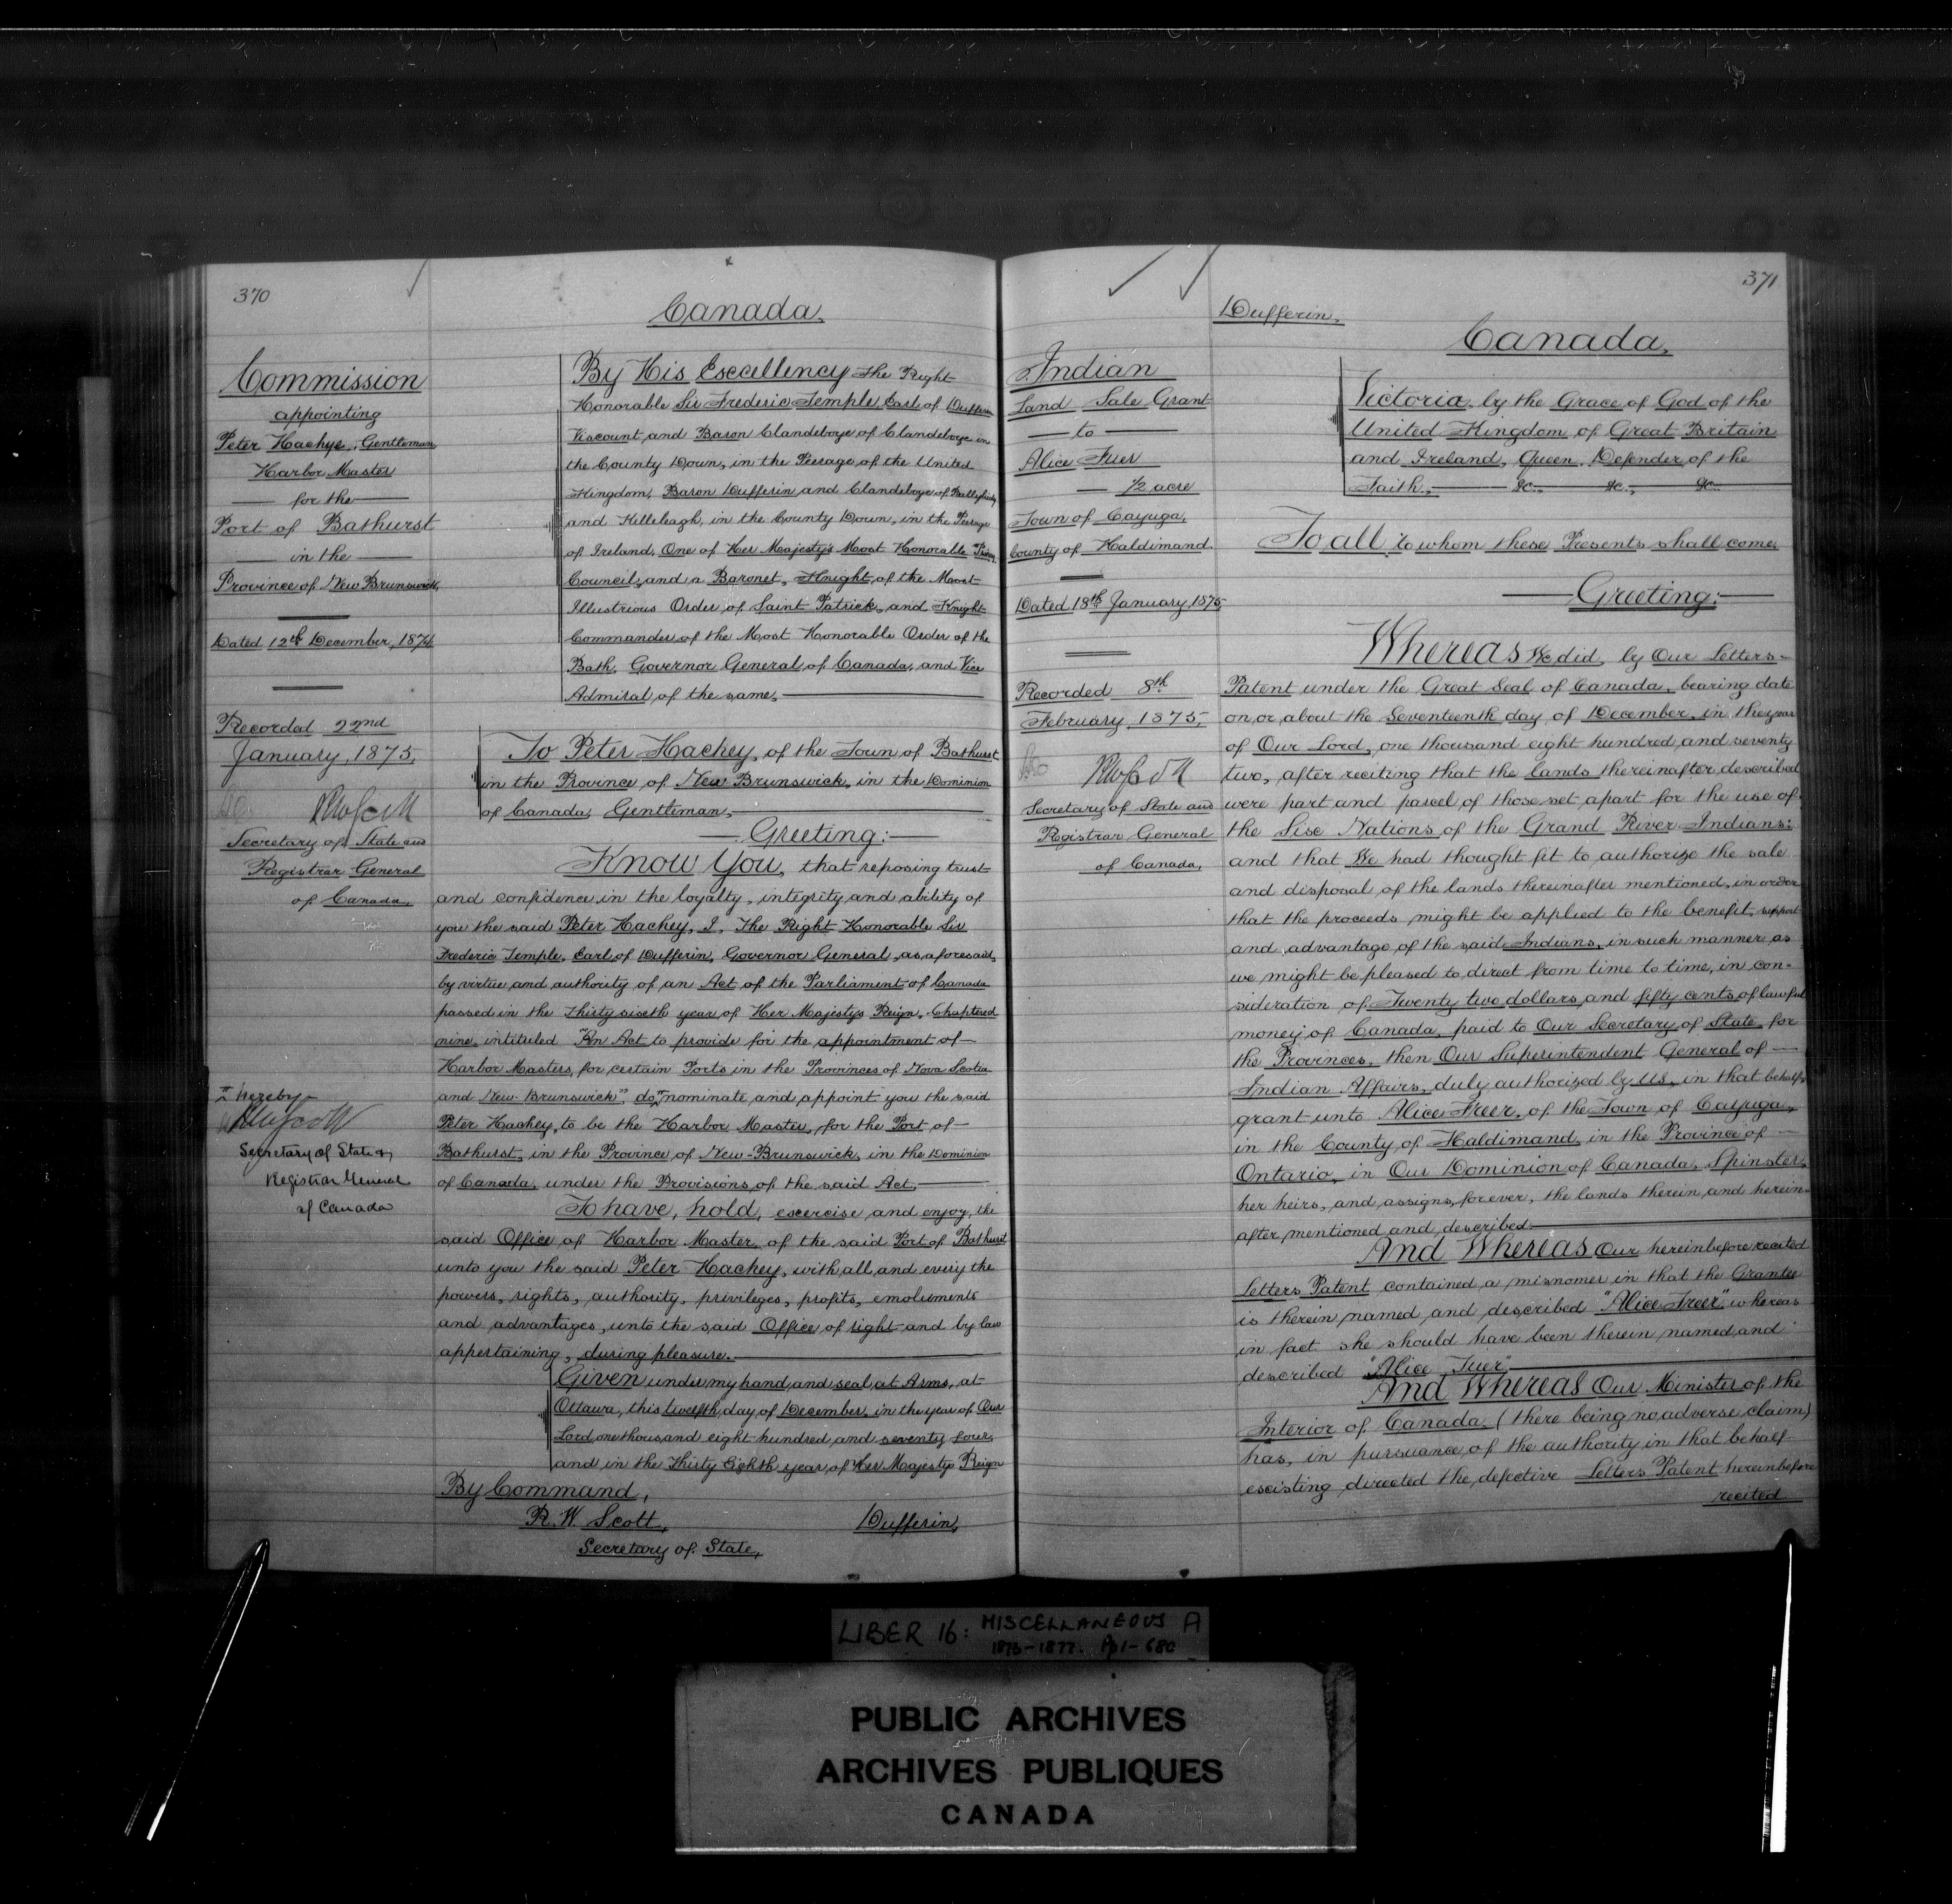 370
Canada.
Commission
appointing
Peter Hachye, Gentleman,
Harbor Master
for the
Port of Bathurst
in the
Province of New Brunswick,
Dated 12th December, 1874.
Recorded 22nd
January, 1875,
RWScott
Secretary of State and
Registrar General
of Canada.
By His Excellency the Right
Honorable Sir Frederic Temple, Earl of Dufferin
Viscount and Baron Clandeboye of Clandeboye in
the County Down, in the Peerage of the United
Kingdom, Baron Dufferin and Clandeboye of Ballyleidy
and Killeleagh, in the County Down, in the Peerage
of Ireland, One of Her Majesty's Most Honorable Privy
Council, and a Baronet, Knight of the Most
Illustrious Order of Saint Patrick, and Knight
Commander of the Most Honorable Order of the
Bath, Governor General of Canada, and Vice
Admiral of the same,
To Peter Hachey, of the Town of Bathurst
in the Province of New Brunswick, in the Dominion
of Canada, Gentleman,
Greeting:
Know You, that reposing trust
and confidence in the loyalty, integrity and ability of
you the said Peter Hachey, I, the Right Honorable Sir
Frederic Temple, Earl of Dufferin, Governor General, as aforesaid,
by virtue and authority of an Act of the Parliament of Canada
passed in the thirty sixth year of Her Majestys Reign, Chaptered
nine, intituled "An Act to provide for the appointment of
Harbor Masters, for certain Ports in the Provinces of Nova Scotia
and New-Brunswick", do nominate and appoint you the said
Peter Hachey, to be the Harbor Master, for the Port of
Bathurst, in the Province of New-Brunswick, in the Dominion
of Canada, under the Provisions of the said Act,
hereby
RWScott
Secretary of State &
Registrar General
of Canada
To have, hold, exercise and enjoy, the
said Office of Harbor Master, of the said Port of Bathurst
unto you the said Peter Hachey, with all and every the
powers, rights, authority, privileges, profits, emoluments
and advantages, unto the said Office of right and by law
appertaining, during pleasure.
Given under my hand and seal at Arms, at
Ottawa, this twelfth day of December, in the year of Our
Lord, one thousand eight hundred and seventy four,
and in the Thirty Eighth year of Her Majestys Reign
By Command,
R. W. Scott,
Dufferin,
Secretary of State,
371
Dufferin.
Canada,
Indian
Land Sale Grant
to
Alice Tuer
1/2 acre
Town of Cayuga,
County of Haldimand.
Dated 18th January, 1875
Recorded 8th
February, 1875,
RWScott
Secretary of State and
Registrar General
of Canada,
Victoria, by the Grace of God of the
United Kingdom of Great Britain
and Ireland, Queen, Defender of the
Faith, &c., &c., &c.
To all to whom these Presents shall come,
Greeting:
Whereas We did, by Our Letters-
Patent under the Great Seal of Canada, bearing date
on, or about the Seventeenth day of December, in the year
of Our Lord, one thousand eight hundred and seventy
two, after reciting that the lands thereinafter described
were part and parcel of those set apart for the use of
the Six Nations of the Grand River Indians:
and that We had thought fit to authorize the sale
and disposal of the lands thereinafter mentioned, in order
that the proceeds might be applied to the benefit, support
and advantage of the said Indians, in such manner as
we might be pleased to direct from time to time, in con-
sideration of Twenty two dollars and fifty cents of lawful
money of Canada, paid to Our Secretary of State, for
the Provinces, then Our Superintendent General of
Indian Affairs, duly authorised by us, in that behalf,
grant unto Alice Freer, of the Town of Cayuga,
in the County of Haldimand, in the Province of
Ontario, in Our Dominion of Canada, Spinster,
her heirs, and assigns, forever, the lands therein and herein-
after mentioned and described.
And Whereas Our hereinbefore recited
Letters Patent contained a misnomer in that the Grantee
is therein named and described "Alice Freer", whereas
in fact she should have been therein named and
described "Alice Tuer"
And Whereas Our Minister of the
Interior of Canada, (there being no adverse claim)
has, in pursuance of the authority in that behalf
existing directed the defective Letters Patent hereinbefore
recited
LIBER 16: MISCELLANEOUS A
1873-1877. Pp 1-680
PUBLIC ARCHIVES
ARCHIVES PUBLIQUES
CANADA